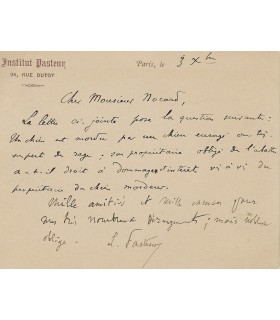 Institut Pasteur
Paris, le 9 Xbre
RUE DUTOT
Cher Monsieur Nocard,
La lettre ci-jointe pose la question suivante:
Un chien est mordu par un chien enragé ou
suspect de rage; son propriétaire obligé de l'abattre
a-t-il droit à dommages-intérêt vis à vis du
propriétaire du chien mordeur.
Mille amitiés et mille excuses pour
nombreux dérangements; mais
obligé. L. Pasteur